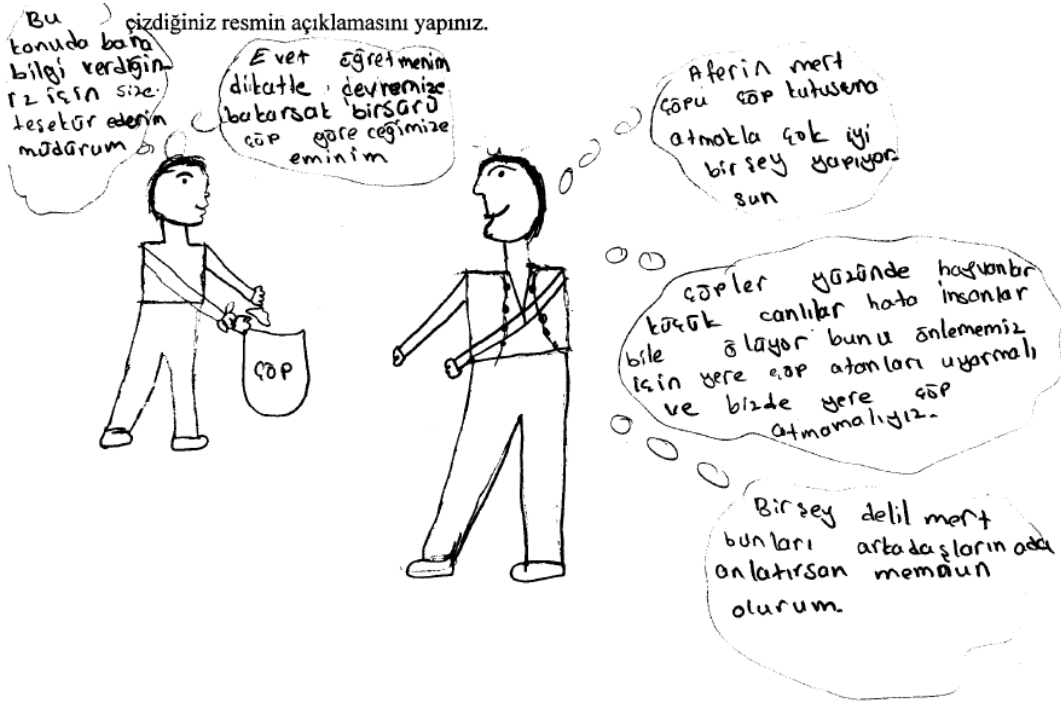 çizdiğiniz resmin açıklamasını yapınız.
Bu
konuda bana
bilgi verdiğin
iz için size
teşekür ederim
müdürüm
Evet öğretmenim
dikatle devremize
bakarsak birsürü
çöp göre ceğimize
eminim
Aferin mert
çöpü çöp kutusuna
atmakla çok iyi
bir şey yapıyor
sun
çöpler yüzünde hayvanlar
küçük canlılar hata insanlar
bile ölüyor bunu önlememiz
için yere çöp atanları uyarmalı
ve bizde yere çöp
atmamalıyız.
Bir şey delil mert
bunları arkadaşların ada
anlatırsan memnun
olurum.
ÇÖP